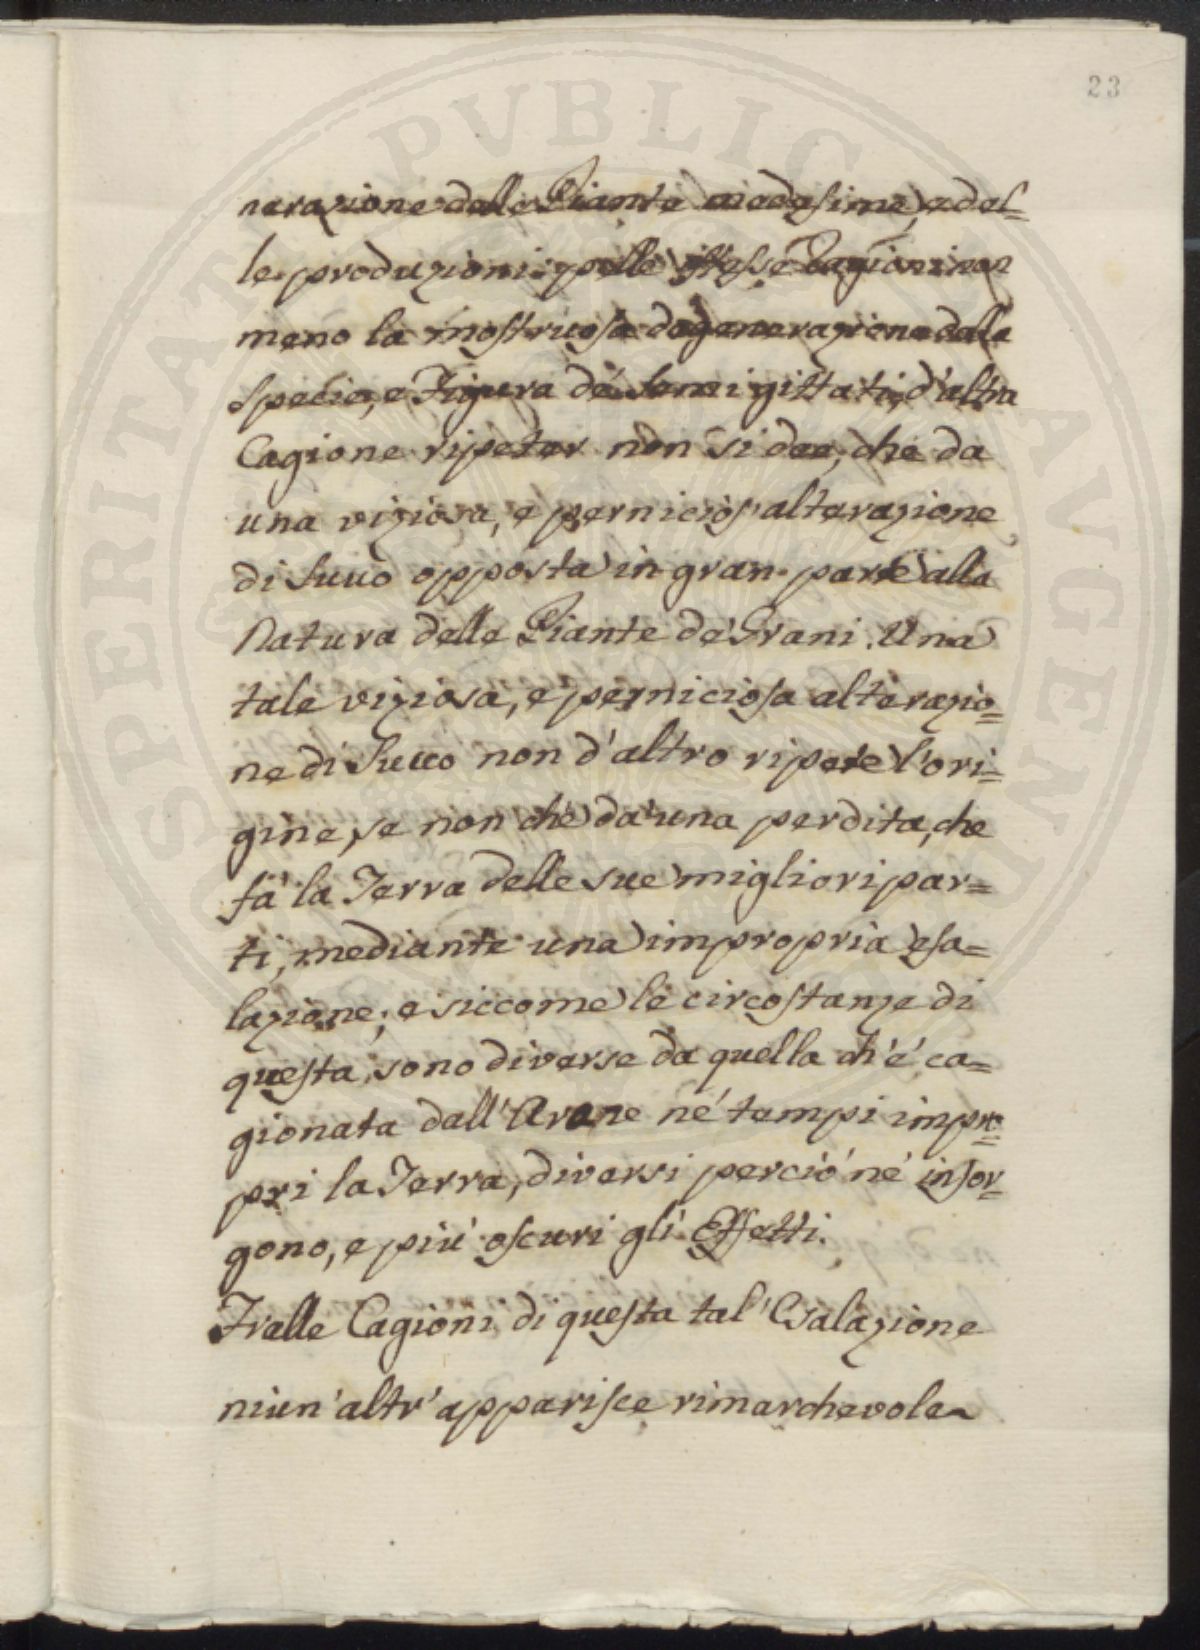 23
nerazione delle Piante medesime, e del=
le produzioni; pelle istesse Cagioni non
meno la mostruosa degenerazione della
Specie, e Figura dé Semi gittati, d'altra
Cagione ripeter non si dee, che da
una viziosa, e pernicios' alterazione
di Succo opposta in gran parte alla
Natura delle Piante dé Grani. Una
tale viziosa, e perniciosa alterazio=
ne di Succo non d'altro ripete l'ori=
gine, se non ché da una perdita, che
fà la Terra delle sue migliori par=
ti, mediante una impropria esa=
lazione; e siccome le circostanze di
questa, sono diverse da quella ch'é ca=
gionata dall'Arare né tempi impro=
pri la Terra, diversi perció né insor=
gono, e piú oscuri gli Effetti.
Fralle Cagioni di questa tal' Esalazione
niun' altr' apparisce rimarchevole
SPERITATI PVBLICAE AVGENDAE